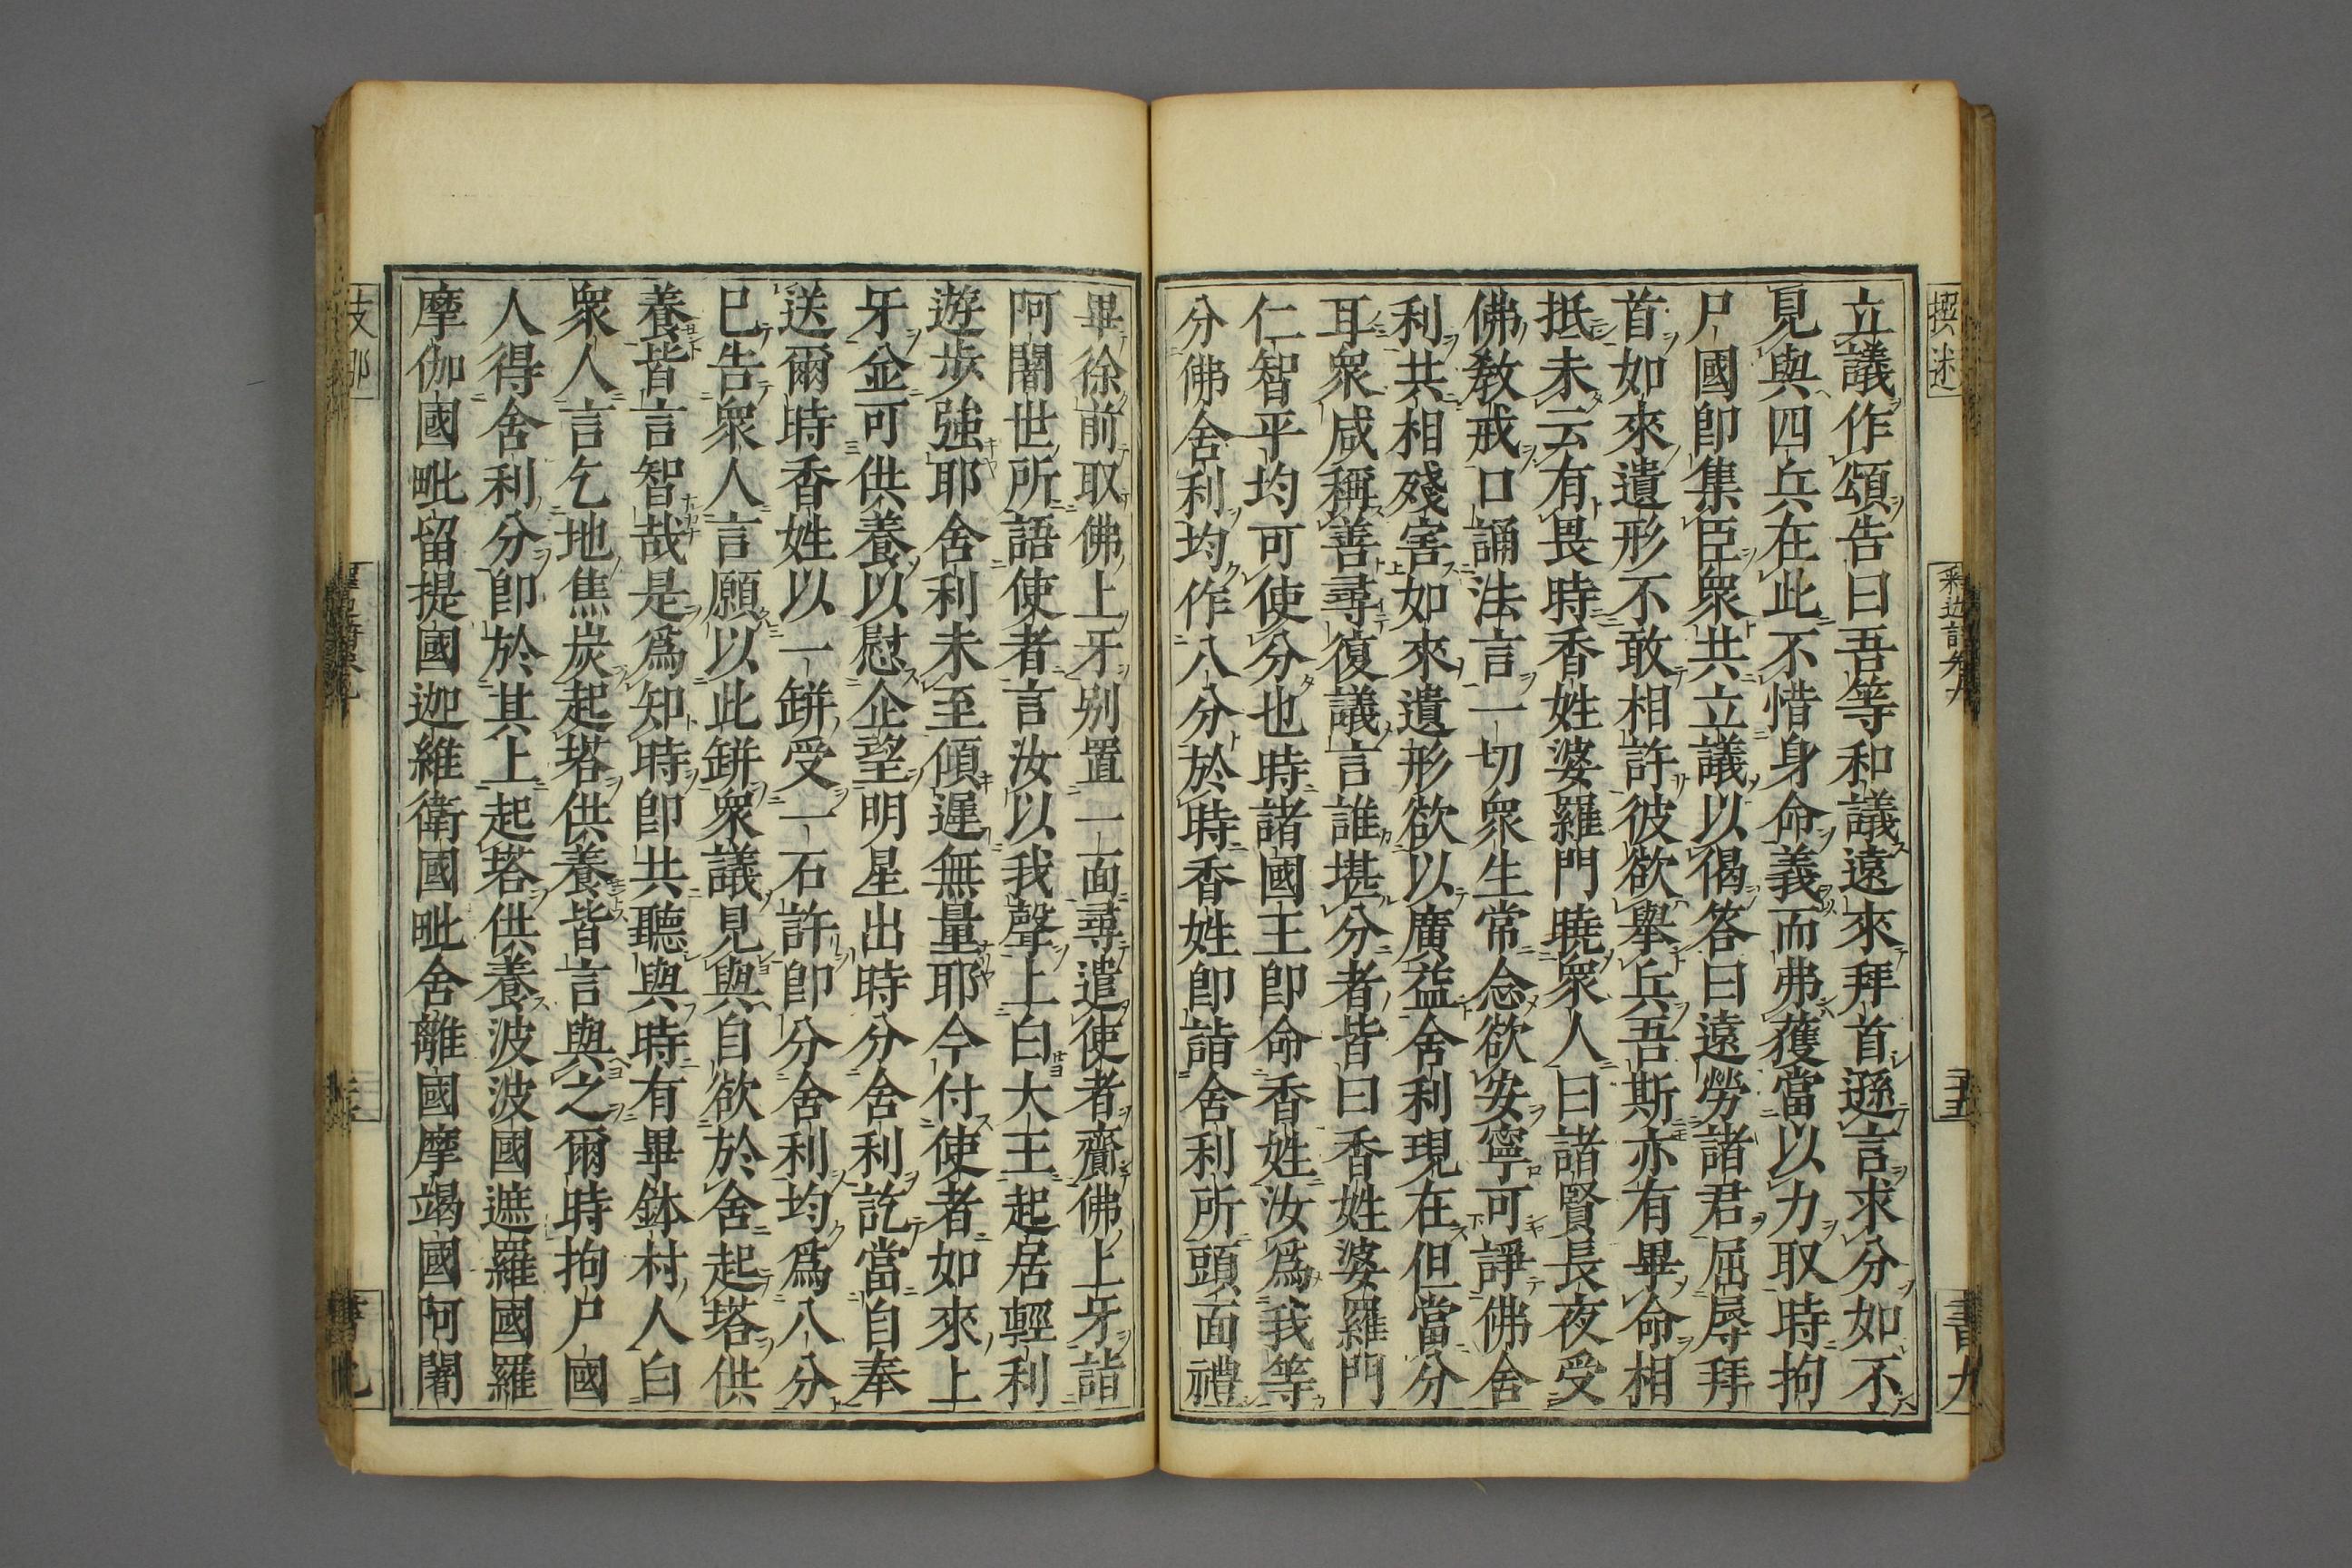 立議作頌告曰吾等和議遠來拜首遜言求分如不
見與四兵在此不惜身命義而弗獲當以力取時拘
尸國即集臣衆共立議以偈答曰遠勞諸君屈辱拜
首如來遺形不敢相許彼欲舉兵吾斯亦有畢命相
抵未云有畏時香姓婆羅門曉衆人曰諸賢長夜受
佛教戒口誦法言一切衆生常念欲安寧可諍佛舍
利共相殘害如來遺形欲以廣益舍利現在但當分
耳衆咸稱善尋復議言誰堪分者皆曰香姓婆羅門
仁智平均可使分也時諸國王即命香姓汝爲我等
分佛舍利均作八分於時香姓即詣舍利所頭面禮
畢徐前取佛上牙別置一面尋遣使者齎佛上牙詣
阿闍世所語使者言汝以我聲上白大王起居輕利
遊步強耶舍利未至傾遲無量耶今付使者如來上
牙並可供養以慰企望明星出時分舍利訖當自奉
送爾時香姓以一缾受一石許即分舍利均爲八分
已告衆人言願以此缾衆議見與自欲於舍起塔供
養皆言智哉是爲知時即共聽與時有畢鉢村人白
衆人言乞地焦炭起塔供養皆言與之爾時拘尸國
人得舍利分即於其上起塔供養波波國遮羅國羅
摩伽國毗留提國迦維衛國毗舍離國摩竭國阿闍
撰述
釋迦譜卷九
書九
支那